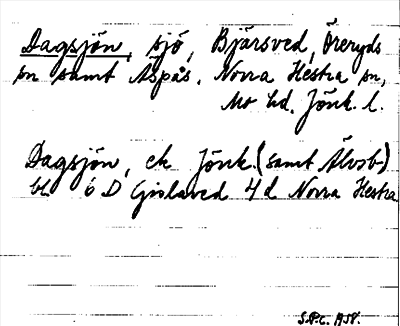 Dagsjön, sjö, Bjärsved, Öreryds
sn samt Aspås, Norra Hestra sn,
Mo hd. Jönk. l.
Dagsjön, ek Jönk. (samt Älvsb)
bl 6 D Gislaved 4 d Norra Hestra
S.P.C. 1958.